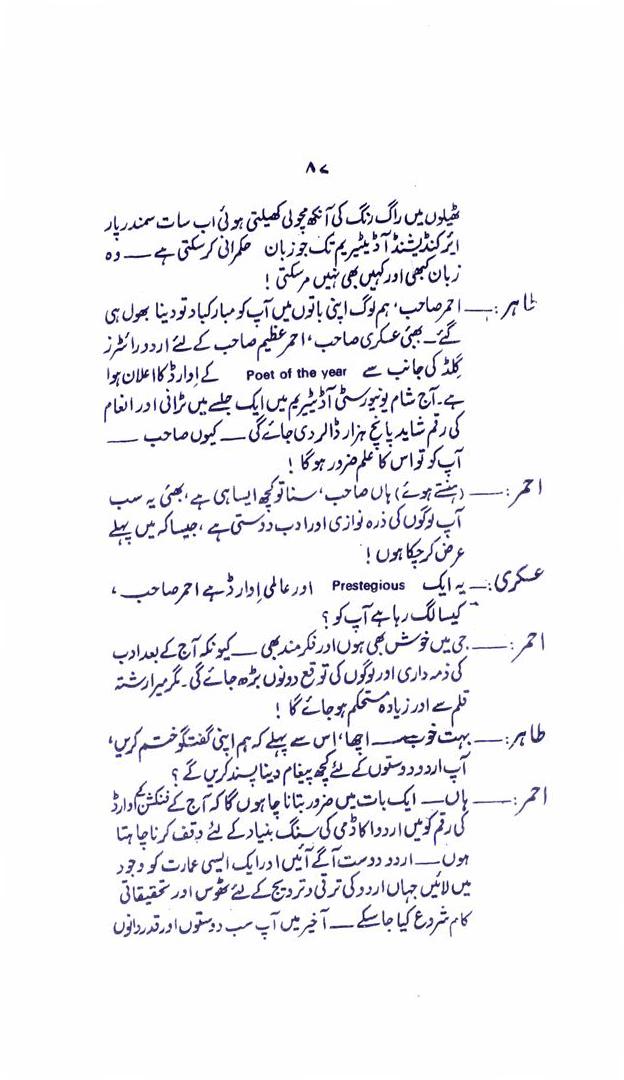 ۸۷
ٹھیلوں میں راگ رنگ کی آنکھ مچولی کھیلتی ہوئی اب سات سمندر پار
ایرکنڈیشنڈ آڈیٹیریم تک جو زبان حکمرانی کر سکتی ہے — وہ
زبان کبھی اور کہیں بھی نہیں مر سکتی !
طاہر :— احمر صاحب، ہم لوگ اپنی باتوں میں آپ کو مبارکباد تو دینا بھول ہی
گئے۔ بھئی عسکری صاحب، احمر عظیم صاحب کے لئے اردو رائٹرز
گلڈ کی جانب سے Poet of the year کے اِوارڈ کا اعلان ہوا
ہے۔ آج شام یونیورسٹی آڈیٹیریم میں ایک جلسے میں ٹرافی اور انعام
کی رقم شاید پانچ ہزار ڈالر دی جائے گی — کیوں صاحب —
آپ کو تو اس کا علم ضرور ہو گا !
احمر :— (ہنستے ہوئے) ہاں صاحب، سنا تو کچھ ایسا ہی ہے، بھئی یہ سب
آپ لوگوں کی ذرہ نوازی اور ادب دوستی ہے، جیسا کہ میں پہلے
عرض کر چکا ہوں !
عسکری :— یہ ایک Prestegious اور عالمی اِوارڈ ہے احمر صاحب،
کیسا لگ رہا ہے آپ کو ؟
احمر :— جی میں خوش بھی ہوں اور فکر مند بھی — کیونکہ آج کے بعد ادب
کی ذمہ داری اور لوگوں کی توقع دونوں بڑھ جائے گی۔ مگر میرا رشتہ
قلم سے اور زیادہ مستحکم ہو جائے گا !
طاہر :— بہت خوب — اچھا، اس سے پہلے کہ ہم اپنی گفتگو ختم کریں،
آپ اردو دوستوں کے لئے کچھ پیغام دینا پسند کریں گے ؟
احمر :— ہاں — ایک بات میں ضرور بتانا چاہوں گا کہ آج کے فنکشن کے اِوارڈ
کی رقم کو میں اردو اکاڈمی کی سنگ بنیاد کے لئے وقف کرنا چاہتا
ہوں — اردو دوست آگے آئیں اور ایک ایسی عمارت کو وجود
میں لائیں جہاں اردو کی ترقی و ترویج کے لئے ٹھوس اور تحقیقاتی
کام شروع کیا جا سکے — آخیر میں آپ سب دوستوں اور قدردانوں